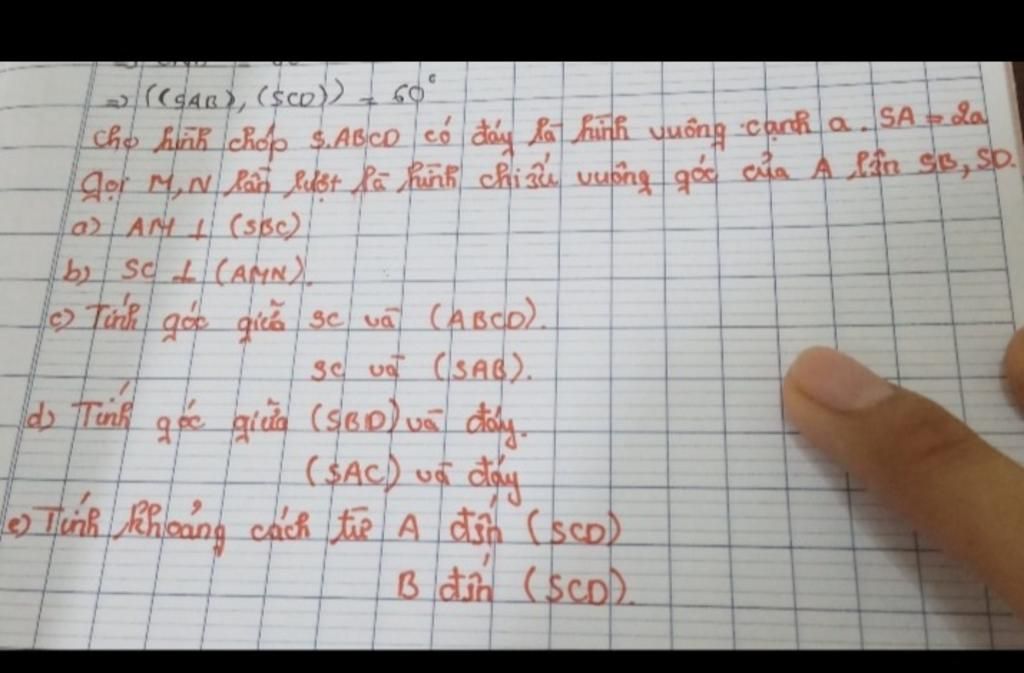 => ((SAB), (SCD)) = 60°
Cho hình chóp S.ABCD có đáy là hình vuông cạnh a. SA = 2a
gọi M, N lần lượt là hình chiếu vuông góc của A lên SB, SD.
a) AM ⊥ (SBC)
b) SC ⊥ (AMN).
c) Tính góc giữa SC và (ABCD).
SC và (SAB).
d) Tính góc giữa (SBD) và đáy.
(SAC) và đáy
e) Tính khoảng cách từ A đến (SCD)
B đến (SCD).